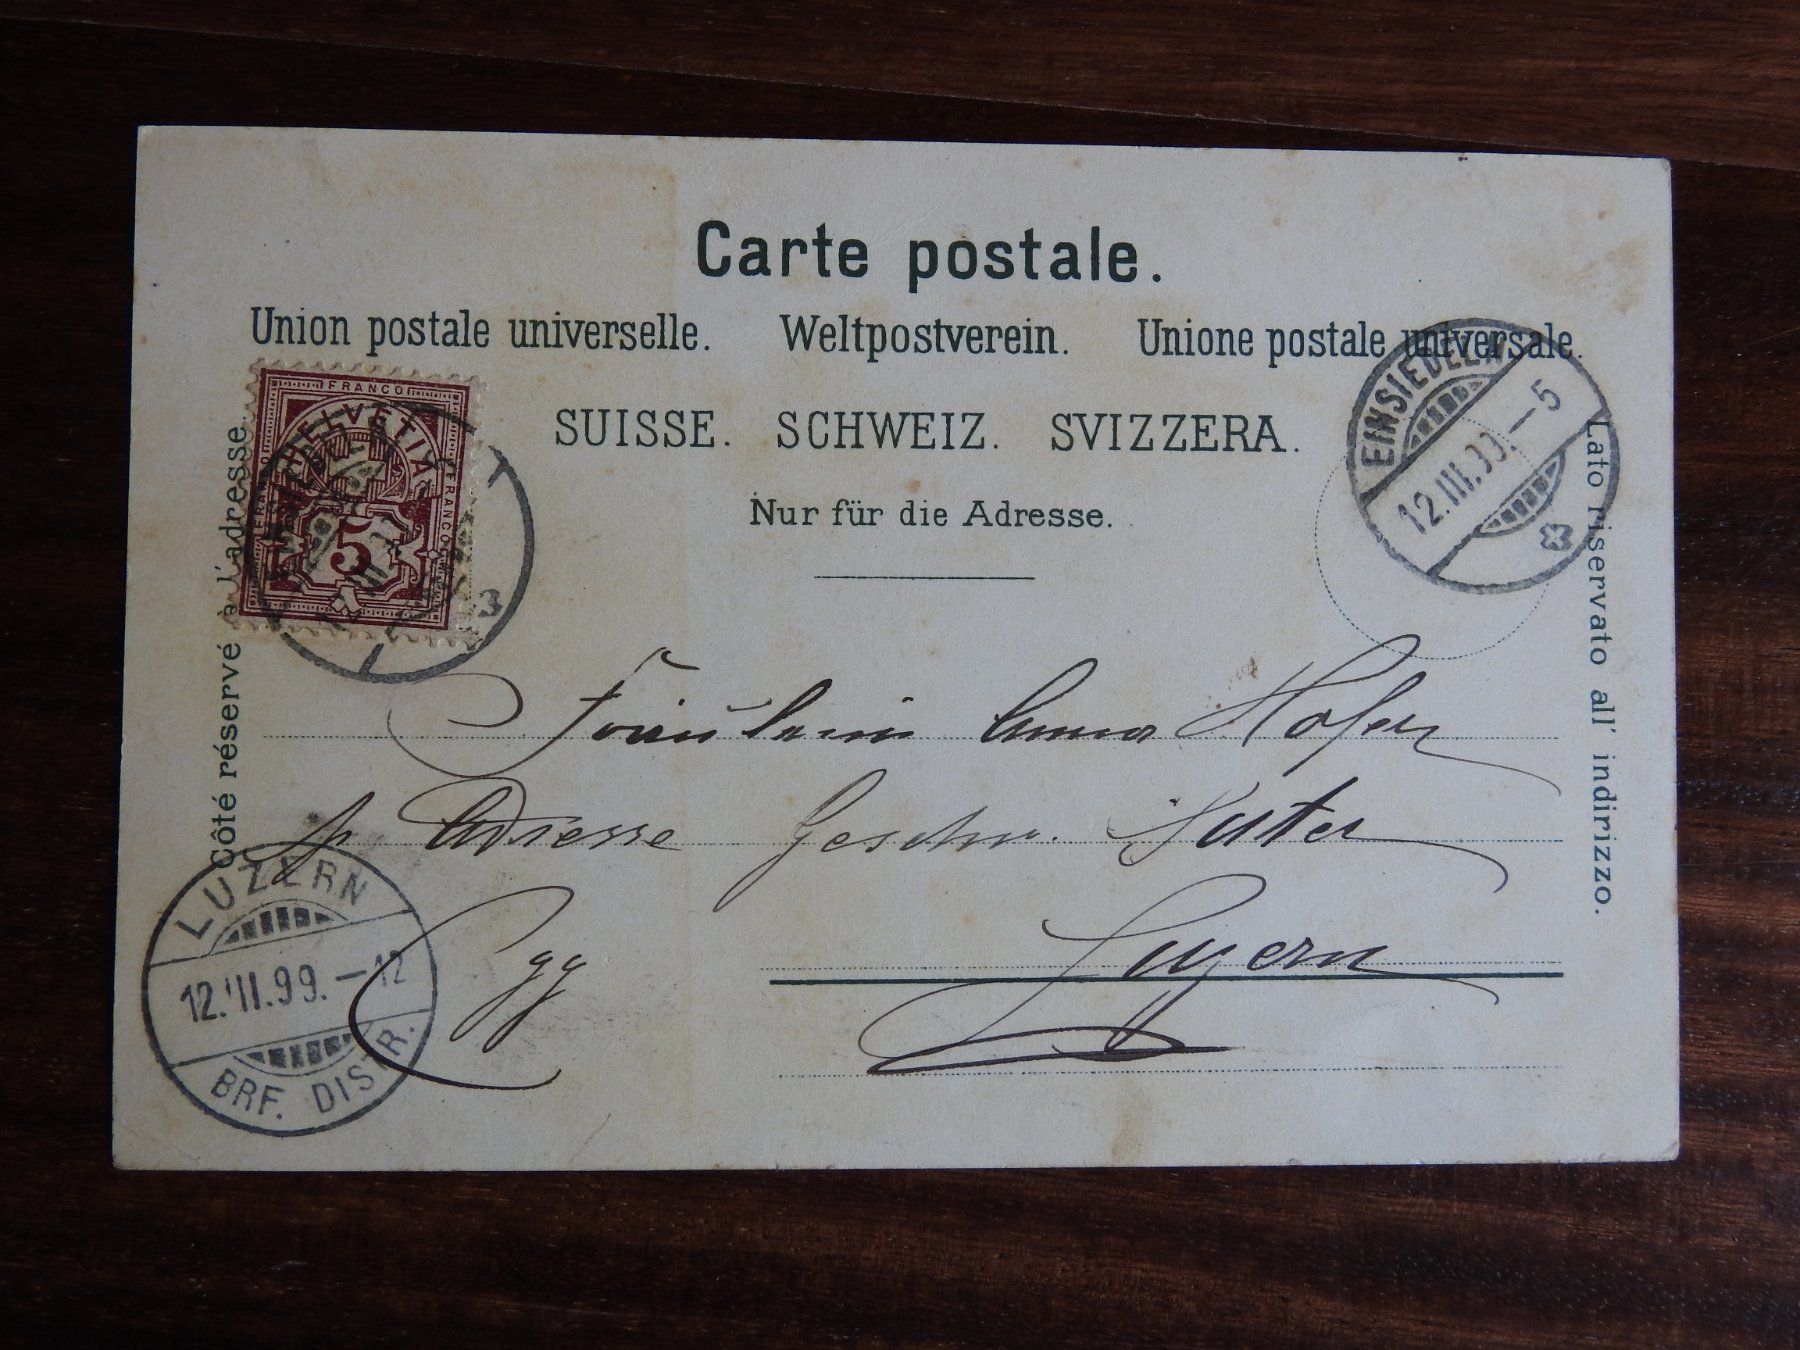 Carte postale.
Union postale universelle. Weltpostverein. Unione postale universale.
SUISSE. SCHWEIZ. SVIZZERA.
Nur für die Adresse.
Côté réservé à l'adresse
Lato riservato all' indirizzo.
FRANCO
HELVETIA
FRANCO
FRANCO
5
EINSIEDELN
12.III.99.–5
Fräulein Anna Hofer
p. Adresse Geschw. Suter
Egg Luzern
LUZERN
12.III.99.–12
BRF. DISTR.